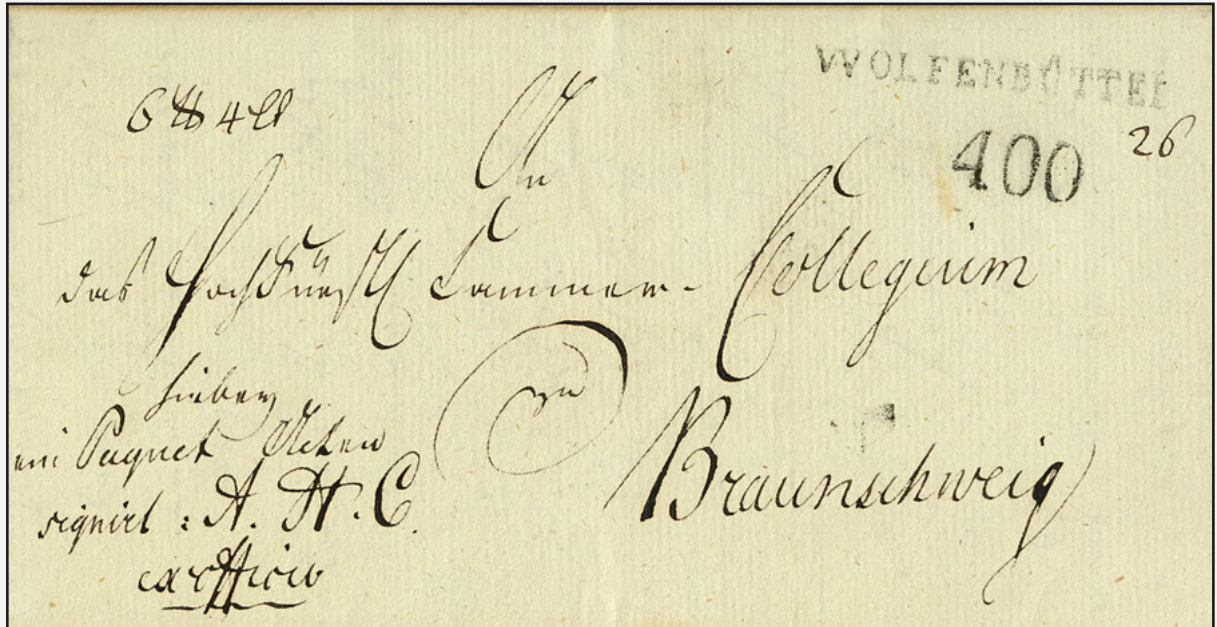 WOLFENBÜTTEL
6 ℔ 4 Lt
400
26
An
das Hochfürstl Cammer-Collegium
zu
Braunschweig
hiebey
ein Paquet Acten
signirt : A. H. C.
ex officio